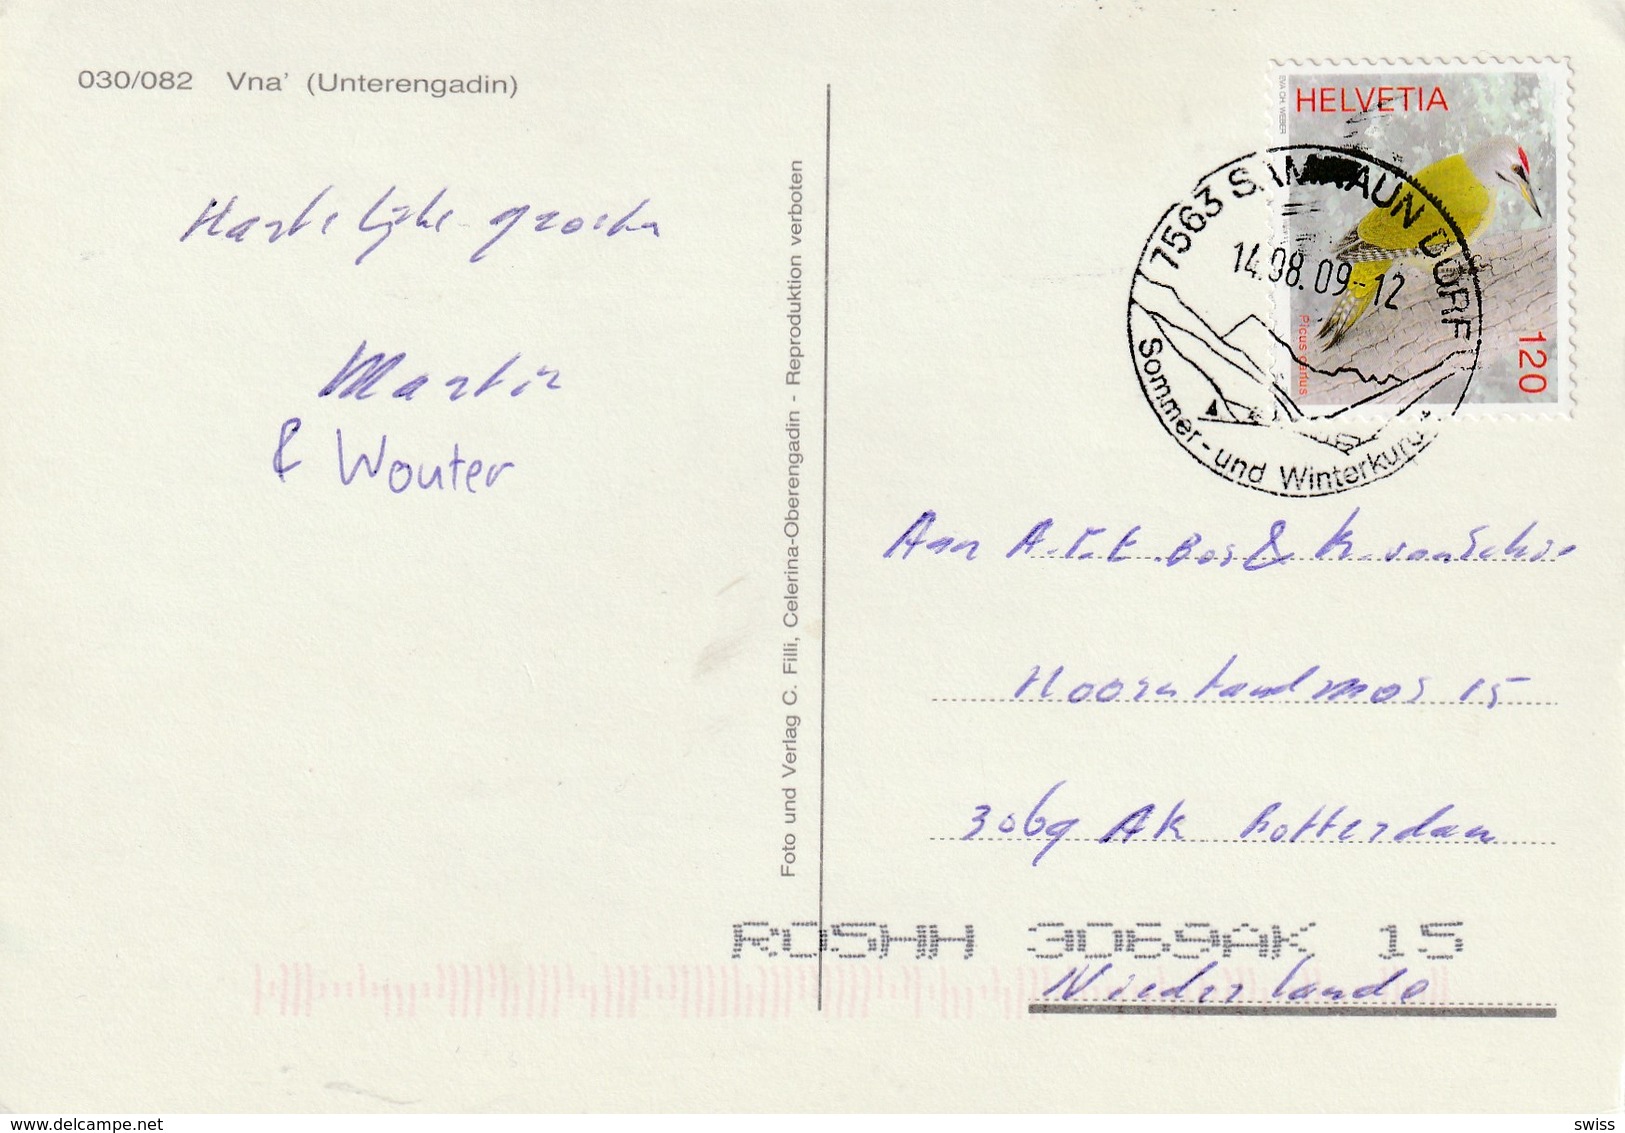 030/082 Vna' (Unterengadin)
Hartelijke groeten
Martin
& Wouter
Foto und Verlag C. Filli, Celerina-Oberengadin - Reproduktion verboten
HELVETIA
EVA CH. WEBER
Picus canus
120
7563 SAMNAUN DORF
14.08.09-12
Sommer- und Winterkurort
Aan A.T.E. Bos & K. van Schie
15
3069 AK Rotterdam
ROSHH 3069AK 15
Niederlande
www.delcampe.net
swiss